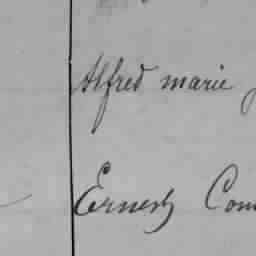 Alfred marie
Ernest